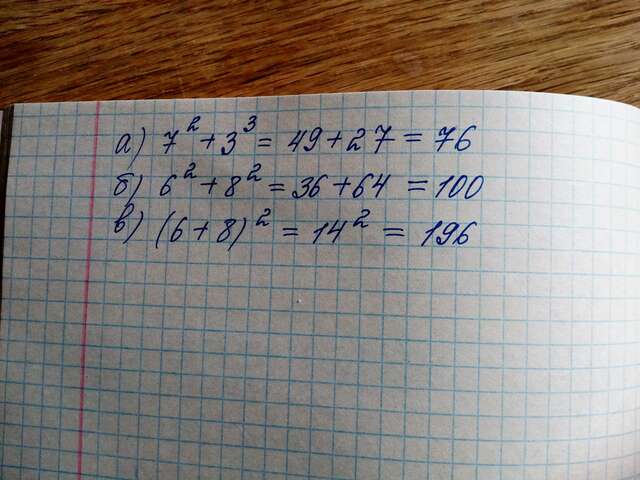 а) 7² + 3³ = 49 + 27 = 76
б) 6² + 8² = 36 + 64 = 100
в) (6 + 8)² = 14² = 196